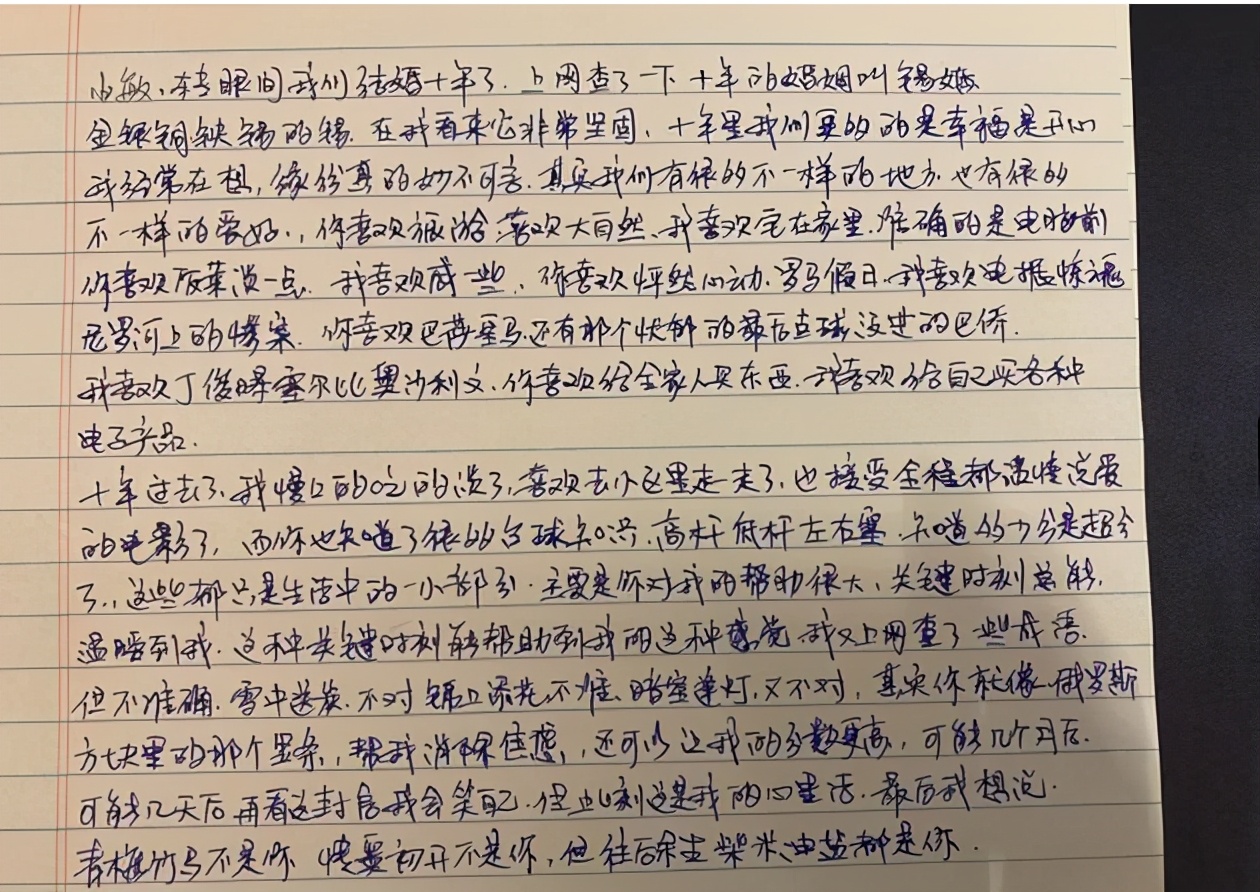 小敏、转眼间我们结婚十年了.上网查了一下 十年的婚姻叫锡婚
金银铜铁锡的锡.在我看来它非常坚固、十年里我们更多的是幸福是开心
我经常在想,缘份真的妙不可言.其实我们有很多不一样的地方.也有很多
不一样的爱好.,你喜欢旅游 喜欢大自然、我喜欢宅在家里.准确的是电脑前
你喜欢饭菜淡一点.我喜欢咸一些、你喜欢怦然心动.罗马假日.我喜欢电锯惊魂
尼罗河上的惨案.你喜欢巴蒂 罗马 还有那个忧郁的最后点球没进的巴乔.
我喜欢丁俊晖塞尔比奥沙利文.你喜欢给全家人买东西.我喜欢给自己买各种
电子产品.
十年过去了.我慢慢的吃的淡了,喜欢去小区里走一走了,也接受全程都谈情说爱
的电影了,而你也知道了很多台球知识.高杆 低杆 左右塞.知道多少分是超分
了.,这些都只是生活中的一小部分.主要是你对我的帮助很大、关键时刻总能.
温暖到我.这种关键时刻能帮助到我的这种感觉 我又上网查了些成语.
但不准确.雪中送炭.不对 锦上添花.不准.暗室逢灯,又不对,其实你就像俄罗斯
方块里的那个竖条,帮我消除焦虑,还可以让我的分数更高,可能几个月后.
可能几天后再看这封信我会笑自己.但此刻这是我的心里话.最后我想说.
青梅竹马不是你 情窦初开不是你,但往后余生 柴米油盐都是你.